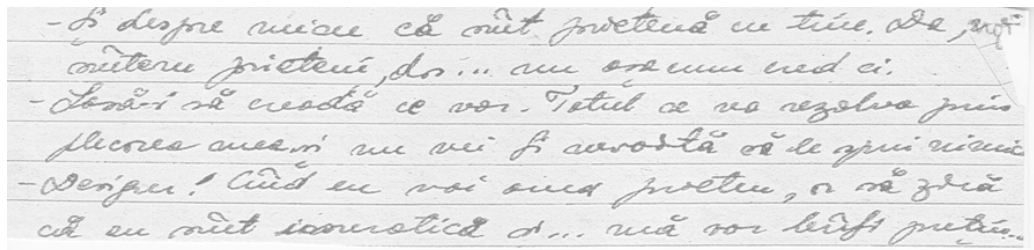 - Și despre mine că sînt prietenă cu tine. Da, noi
sîntem prieteni, da... nu așa cum cred ei.
- Lasă-i să creadă ce vor. Totul se va rezolva prin
plecarea mea și nu vei fi nevoită să le spui nimic
- Desigur! Cînd eu voi avea prieten, o să zică
că eu sînt și... mă vor bîrfi puțin...